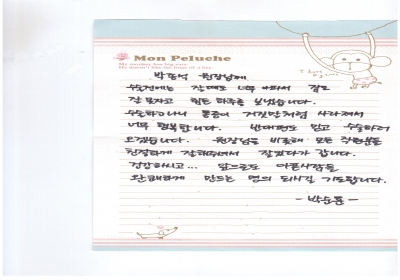 Mon Peluche
My number has big ears.
원장님께
수술전에는 잘때도 너무 아파서 잠도
잘 못자고 힘든 하루를 보냈습니다.
수술하고나니 통증이 거짓말처럼 사라져서
너무 행복합니다. 반대편도 믿고 수술하러
오겠습니다. 원장님을 비롯해 모든 직원분들
친절하게 잘해주셔서 잘있다가 갑니다.
건강하시고... 앞으로도 아픈사람들
완쾌하게 만드는 명의 되시길 기도합니다.